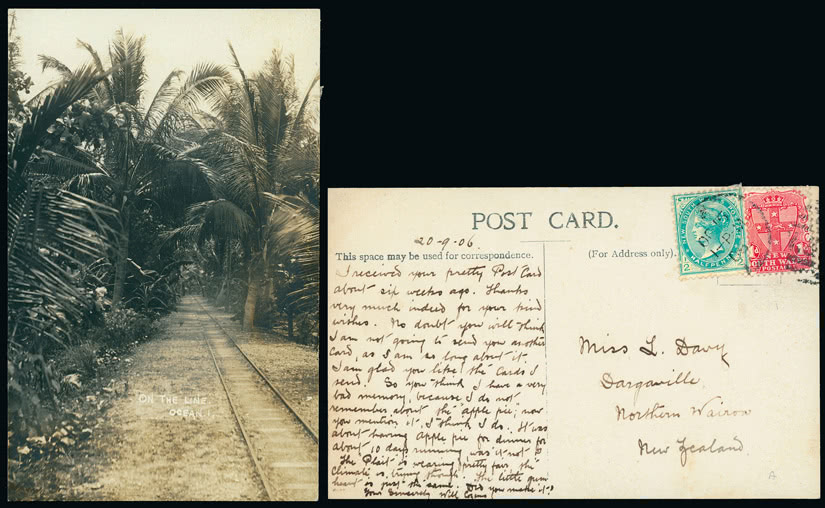 ON THE LINE.
OCEAN I.
POST CARD.
20-9-06.
This space may be used for correspondence.
(For Address only).
I received your pretty Post Card
about six weeks ago. Thanks
very much indeed for your kind
wishes. No doubt you will think
I am not going to send you another
Card, as I am so long about it.
I am glad you like the Cards I
send. So you think I have a very
bad memory, because I do not
remember about the "apple pie"; now
you mention it, I think I do. It was
about having apple pie for dinner for
about 10 days running, was it not?
The Plait is wearing pretty fair, the
climate is, trying though. The little gum
heart is just the same. Did you make it?
Your Sincerely Will
Miss L. Davy
Dargaville,
Northern Wairoa
New Zealand.
NEW SOUTH
HALFPENNY
2
POSTAGE
A